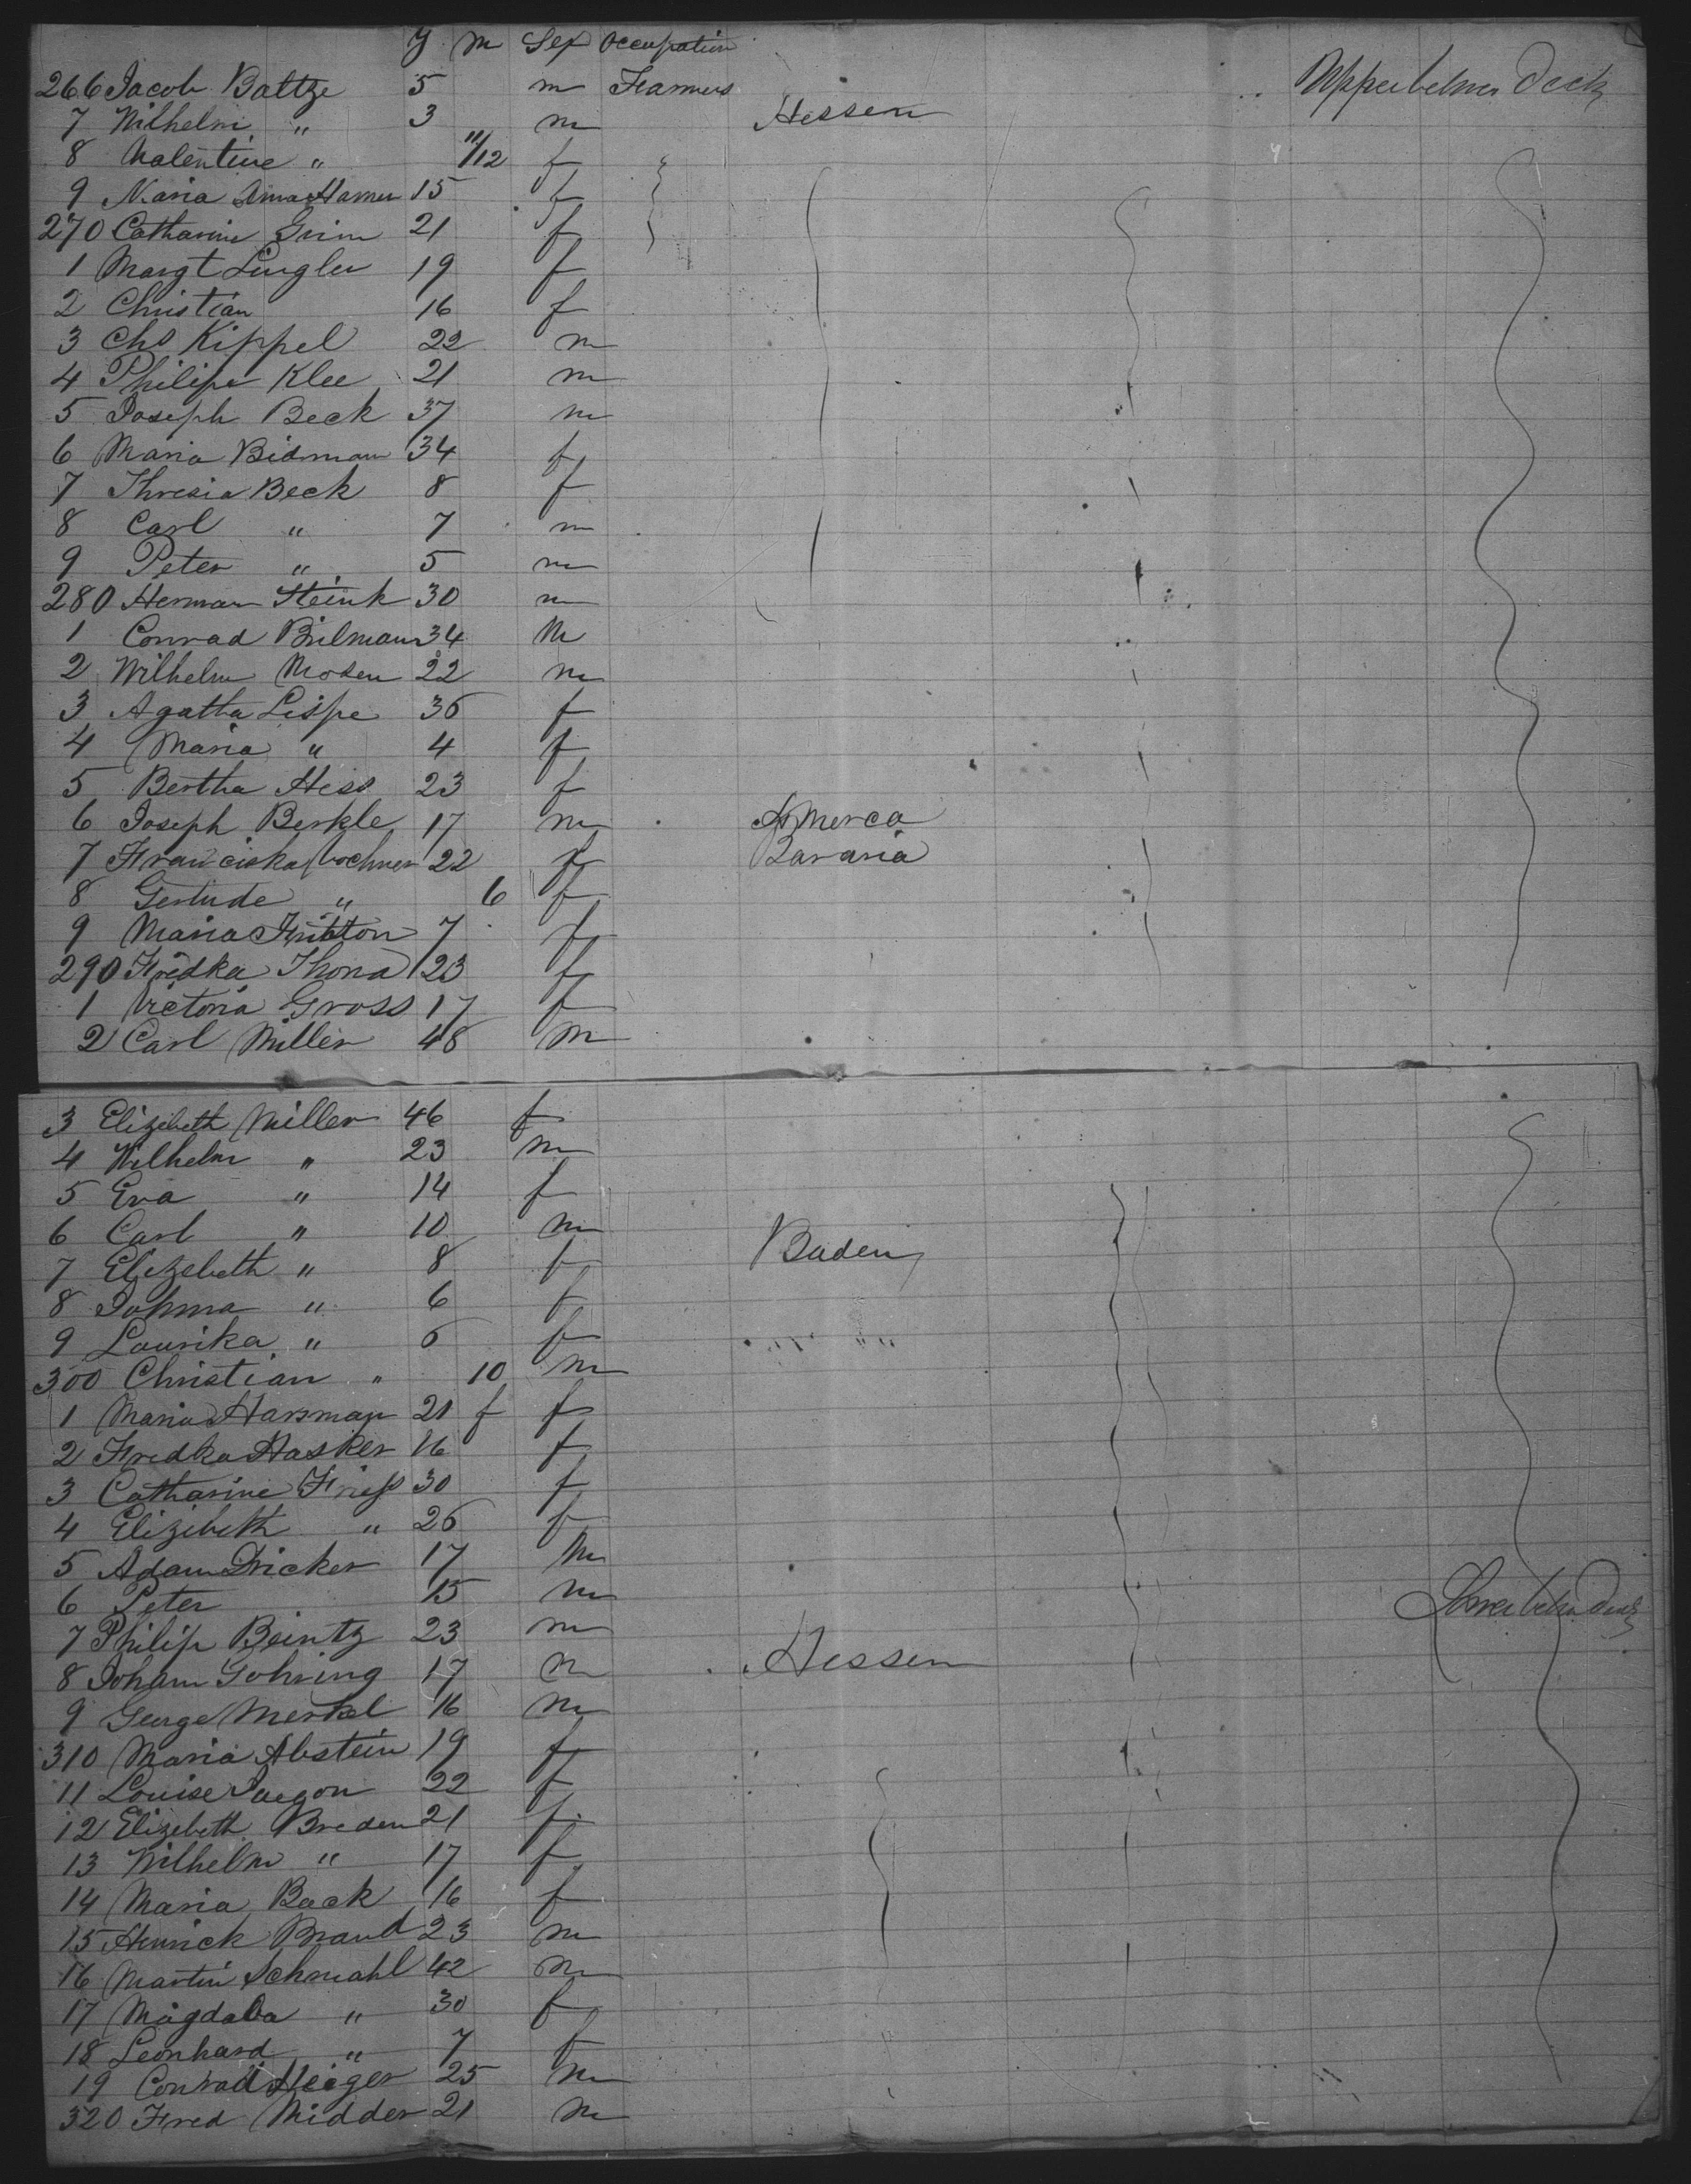 y m Sex Occupation
266 Jacob Baltze 5 m Farmers Upper between Deck
7 Wilhelm " 3 m Hessen
8 Valentine " 11/12 f
9 Maria Anna Hamer 15 f
270 Catharine Grim 21 f
1 Margt Lingler 19 f
2 Christian 16 f
3 Chs Kippel 22 m
4 Philipe Klee 21 m
5 Joseph Beck 37 m
6 Maria Bidman 34 f
7 Thresia Beck 8 f
8 Carl " 7 m
9 Peter " 5 m
280 Herman Steink 30 m
1 Conrad Brilmann 34 m
2 Wilhelm Mosen 22 m
3 Agatha Lispe 36 f
4 Maria " 4 f
5 Bertha Hess 23 f
6 Joseph Berkle 17 m Amerca
7 Franciska Vochner 22 f Bavaria
8 Gertude " 6 f
9 Maria Fritton 7 f
290 Fredka Thona 23 f
1 Victoria Gross 17 f
2 Carl Miller 48 m
3 Elizebeth Miller 46 f
4 Wilhelm " 23 m
5 Eva " 14 f
6 Carl " 10 m
7 Elizebeth " 8 f Baden
8 Johma " 6 f
9 Laurika " 6 f
300 Christian " 10 m
1 Maria Harsman 21 f f
2 Fredka Hasker 16 f
3 Catharine Friess 30 f
4 Elizibeth " 26 f
5 Adam Dricker 17 m
6 Peter 15 m
7 Philip Beintz 23 m
8 Joham Gohring 17 m Hessen
9 George Merkel 16 m
310 Maria Abstein 19 f
11 Louise 22 f
12 Elizebeth Breden 21 f
13 Wilhelm " 17 f
14 Maria Back 16 f
15 Henrick Brand 23 m
16 Martin Schmahl 42 m
17 Magdala " 30 f
18 Leonhard " 7 f
19 Conrad Heiger 25 m
320 Fred Midder 21 m